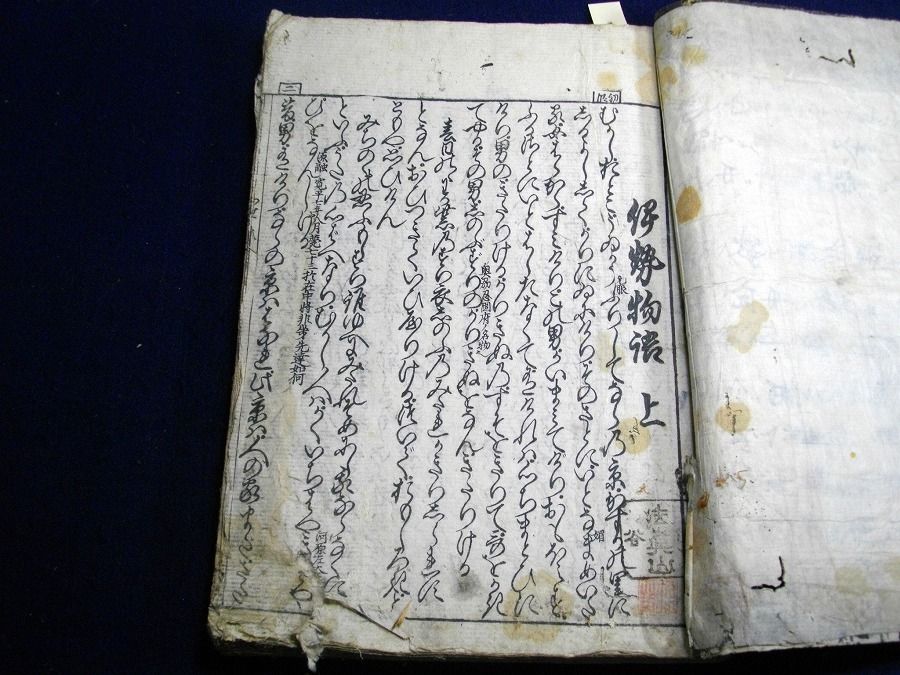 初段
伊勢物語 上
むかしおとこうゐかうぶりしてならの京かすかの里に
元服
しるよししてかりにいにけりそのさとにいとなまめいた
媚
る女はらからすみけりこの男かいまみてけりおもほえず
ふるさとにいとはしたなくてありければ心ちまどひに
けり男のきたりけるかりきぬのすそをきりて哥をかき
てやるその男しのぶずりのかりきぬをなんきたりける
奥州忍郡府ノ名物
春日野の若紫のすり衣しのふのみたれかきりしられす
となんおひつきていひやりけるついでおもしろきこと
ともや思ひけん
みちのくの忍ふもちすり誰ゆへにみたれそめにし我ならなくに
といふうたの心ばへなりむかし人はかくいちはやきみや
河原左大
びをなんしける
源融 寛平七年八月薨七十三 於在中将非幣先達如何
二
昔男有けりならの京ははなれ此京は人の家またさた